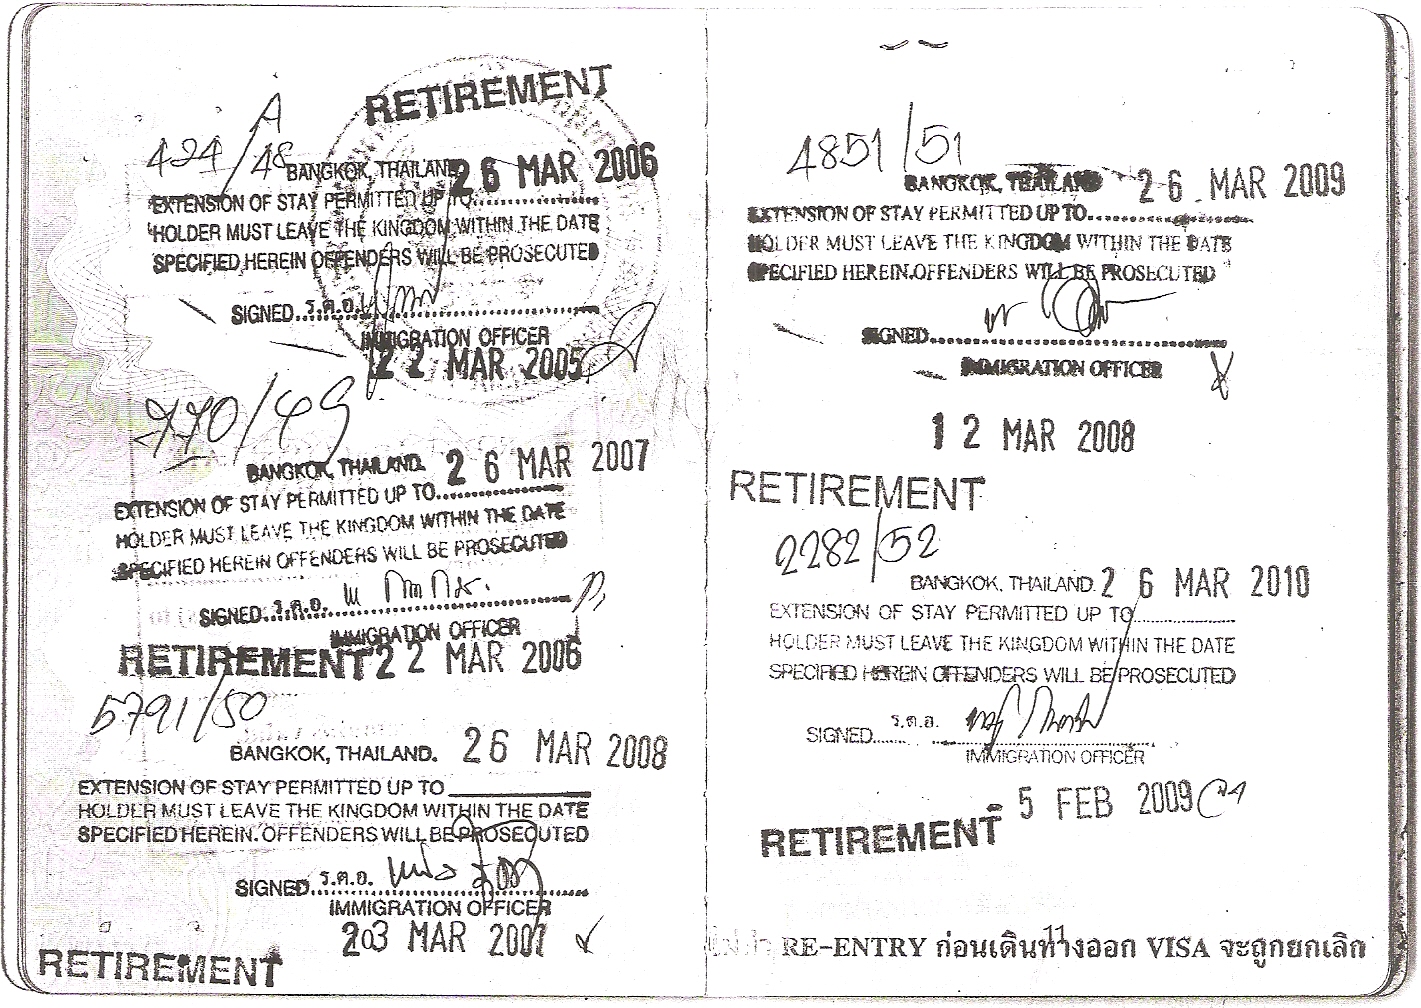 RETIREMENT
A
424/48
BANGKOK, THAILAND 26 MAR 2006
EXTENSION OF STAY PERMITTED UP TO
HOLDER MUST LEAVE THE KINGDOM WITHIN THE DATE
SPECIFIED HEREIN OFFENDERS WILL BE PROSECUTED
SIGNED ร.ต.อ.
IMMIGRATION OFFICER
22 MAR 2005
770/49
BANGKOK, THAILAND. 26 MAR 2007
EXTENSION OF STAY PERMITTED UP TO
HOLDER MUST LEAVE THE KINGDOM WITHIN THE DATE
SPECIFIED HEREIN OFFENDERS WILL BE PROSECUTED
SIGNED ร.ต.อ.
IMMIGRATION OFFICER
RETIREMENT 22 MAR 2006
5791/50
BANGKOK, THAILAND. 26 MAR 2008
EXTENSION OF STAY PERMITTED UP TO
HOLDER MUST LEAVE THE KINGDOM WITHIN THE DATE
SPECIFIED HEREIN. OFFENDERS WILL BE PROSECUTED
SIGNED ร.ต.อ.
IMMIGRATION OFFICER
MAR 2007
RETIREMENT
4851/51
BANGKOK, THAILAND 26 MAR 2009
EXTENSION OF STAY PERMITTED UP TO
HOLDER MUST LEAVE THE KINGDOM WITHIN THE DATE
SPECIFIED HEREIN.OFFENDERS WILL BE PROSECUTED
SIGNED
IMMIGRATION OFFICER
12 MAR 2008
RETIREMENT
2282/52
BANGKOK, THAILAND. 26 MAR 2010
EXTENSION OF STAY PERMITTED UP TO
HOLDER MUST LEAVE THE KINGDOM WITHIN THE DATE
SPECIFIED HEREIN OFFENDERS WILL BE PROSECUTED
SIGNED ร.ต.อ.
IMMIGRATION OFFICER
5 FEB 2009
RETIREMENT
11
RE-ENTRY ก่อนเดินทางออก VISA จะถูกยกเลิก